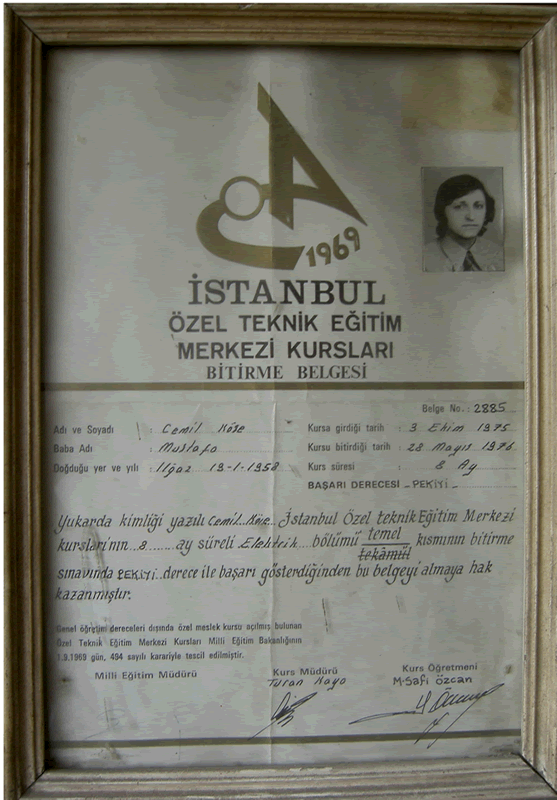 1969
İSTANBUL
ÖZEL TEKNİK EĞİTİM
MERKEZİ KURSLARI
BİTİRME BELGESİ
Belge No.: 2885
Adı ve Soyadı : Cemil Köse
Kursa girdiği tarih : 3 Ekim 1975
Baba Adı : Mustafa
Kursu bitirdiği tarih : 28 Mayıs 1976
Doğduğu yer ve yılı : Ilgaz 19-1-1958
Kurs süresi : 8 Ay
BAŞARI DERECESİ : PEKİYİ
Yukarda kimliği yazılı Cemil Köse İstanbul Özel teknik Eğitim Merkezi
kurslarının 8 ay süreli Elektrik bölümü temel
tekâmül kısmının bitirme
sınavında PEKİYİ derece ile başarı gösterdiğinden bu belgeyi almaya hak
kazanmıştır.
Genel öğretim dereceleri dışında özel meslek kursu açılmış bulunan
Özel Teknik Eğitim Merkezi Kursları Milli Eğitim Bakanlığının
7.9.1969 gün, 494 sayılı karariyle tescil edilmiştir.
Milli Eğitim Müdürü
Kurs Müdürü
Turan Kaya
Kurs Öğretmeni
M.Safi Özcan